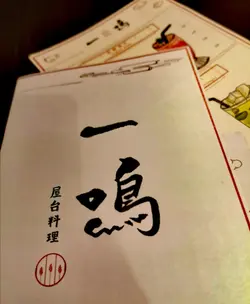 一鳴
屋台料理
一鳴